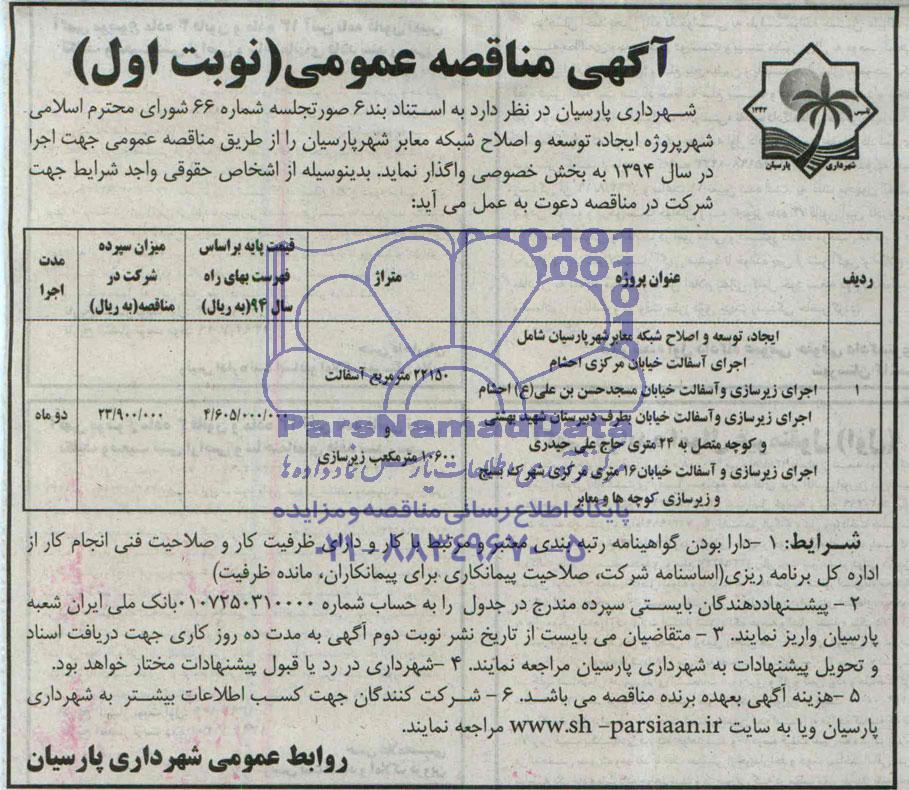 آگهی مناقصه عمومی(نوبت اول)
۱۳۴۳
شهرداری پارسیان
شهرداری پارسیان در نظر دارد به استناد بند۶ صورتجلسه شماره ۶۶ شورای محترم اسلامی
شهرپروژه ایجاد، توسعه و اصلاح شبکه معابر شهرپارسیان را از طریق مناقصه عمومی جهت اجرا
در سال ۱۳۹۴ به بخش خصوصی واگذار نماید. بدینوسیله از اشخاص حقوقی واجد شرایط جهت
شرکت در مناقصه دعوت به عمل می آید:
ردیف
عنوان پروژه
متراژ
قیمت پایه براساس
فهرست بهای راه
سال ۹۴(به ریال)
میزان سپرده
شرکت در
مناقصه(به ریال)
مدت
اجرا
۱
ایجاد، توسعه و اصلاح شبکه معابرشهرپارسیان شامل
اجرای آسفالت خیابان مرکزی احشام
اجرای زیرسازی وآسفالت خیابان مسجدحسن بن علی(ع) احشام
اجرای زیرسازی وآسفالت خیابان بطرف دبیرستان شهید بهشتی
و کوچه متصل به ۲۴ متری حاج علی حیدری
اجرای زیرسازی و آسفالت خیابان۱۶ متری مرکزی شهرک بسیج
و زیرسازی کوچه ها و معابر
۲۲۱۵۰ مترمربع آسفالت
و
۱۰۶۰۰ مترمکعب زیرسازی
۴/۶۰۵/۰۰۰/۰۰۰
۲۳/۹۰۰/۰۰۰
دو ماه
ParsNamadData
پایگاه اطلاع رسانی مناقصه و مزایده
۰۲۱-۸۸۳۴۹۶۷۰-۵
شرایط: ۱ –دارا بودن گواهینامه رتبه بندی معتبر و مرتبط با کار و دارای ظرفیت کار و صلاحیت فنی انجام کار از
اداره کل برنامه ریزی(اساسنامه شرکت، صلاحیت پیمانکاری برای پیمانکاران، مانده ظرفیت)
۲ – پیشنهاددهندگان بایستی سپرده مندرج در جدول را به حساب شماره ۰۱۰۷۲۵۰۳۱۰۰۰۰بانک ملی ایران شعبه
پارسیان واریز نمایند. ۳ – متقاضیان می بایست از تاریخ نشر نوبت دوم آگهی به مدت ده روز کاری جهت دریافت اسناد
و تحویل پیشنهادات به شهرداری پارسیان مراجعه نمایند. ۴ –شهرداری در رد یا قبول پیشنهادات مختار خواهد بود.
۵ –هزینه آگهی بعهده برنده مناقصه می باشد. ۶ – شرکت کنندگان جهت کسب اطلاعات بیشتر به شهرداری
پارسیان ویا به سایت www.sh –parsiaan.ir مراجعه نمایند.
روابط عمومی شهرداری پارسیان